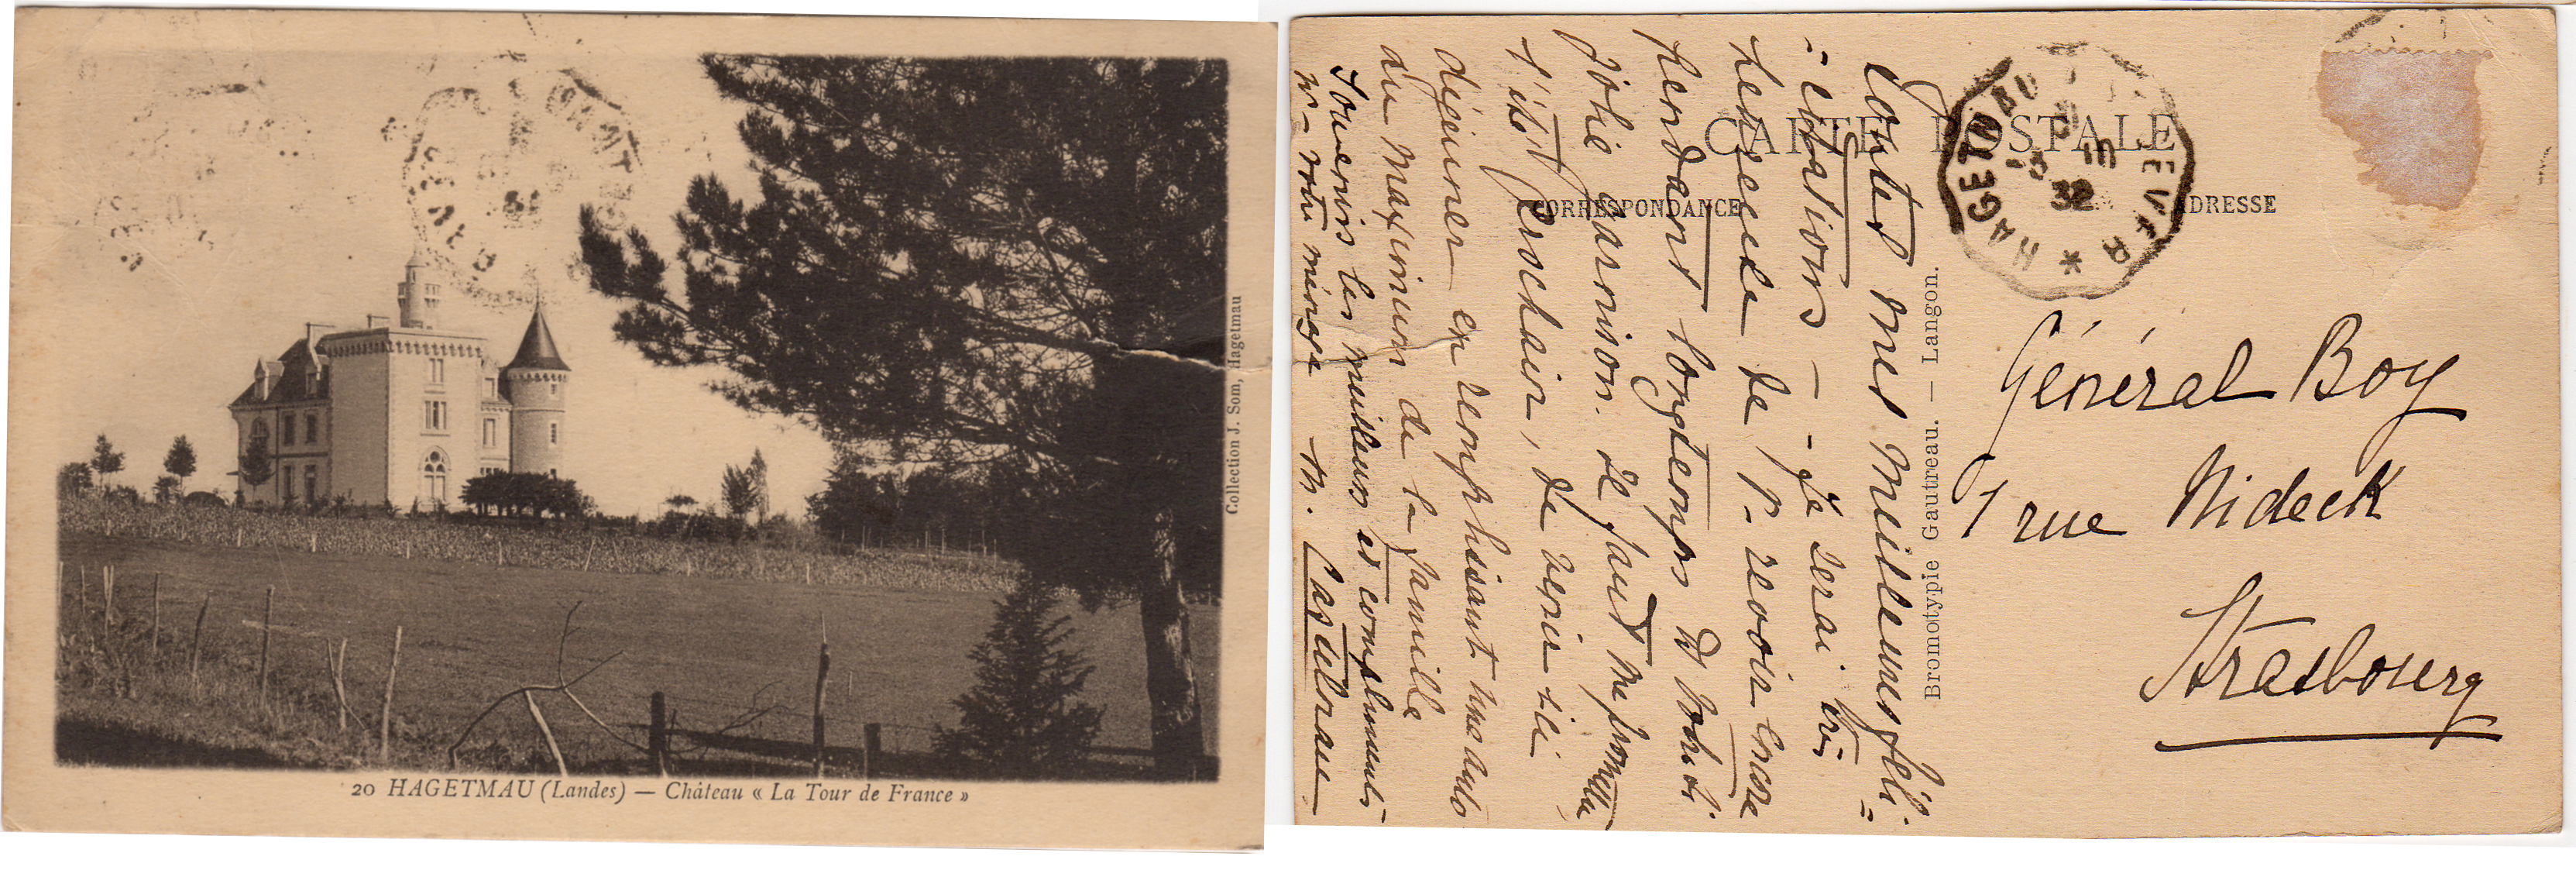 20 HAGETMAU (Landes) — Château « La Tour de France »
Collection J. Som, Hagetmau
CARTE POSTALE
CORRESPONDANCE
ADRESSE
Bromotypie Gautreau. — Langon.
HAGETMAU
32
Toutes mes meilleures féli-
citations — Je serai très
heureuse de v. revoir encore
pendant longtemps et votre
jolie garnison. Il faut me promettre
l'été prochain, de venir ici
déjeuner en remplissant une auto
du maximum de la famille
Souvenirs les meilleurs et compliments
votre ménage M. Castelnau
Général Boy
1 rue Nideck
Strasbourg